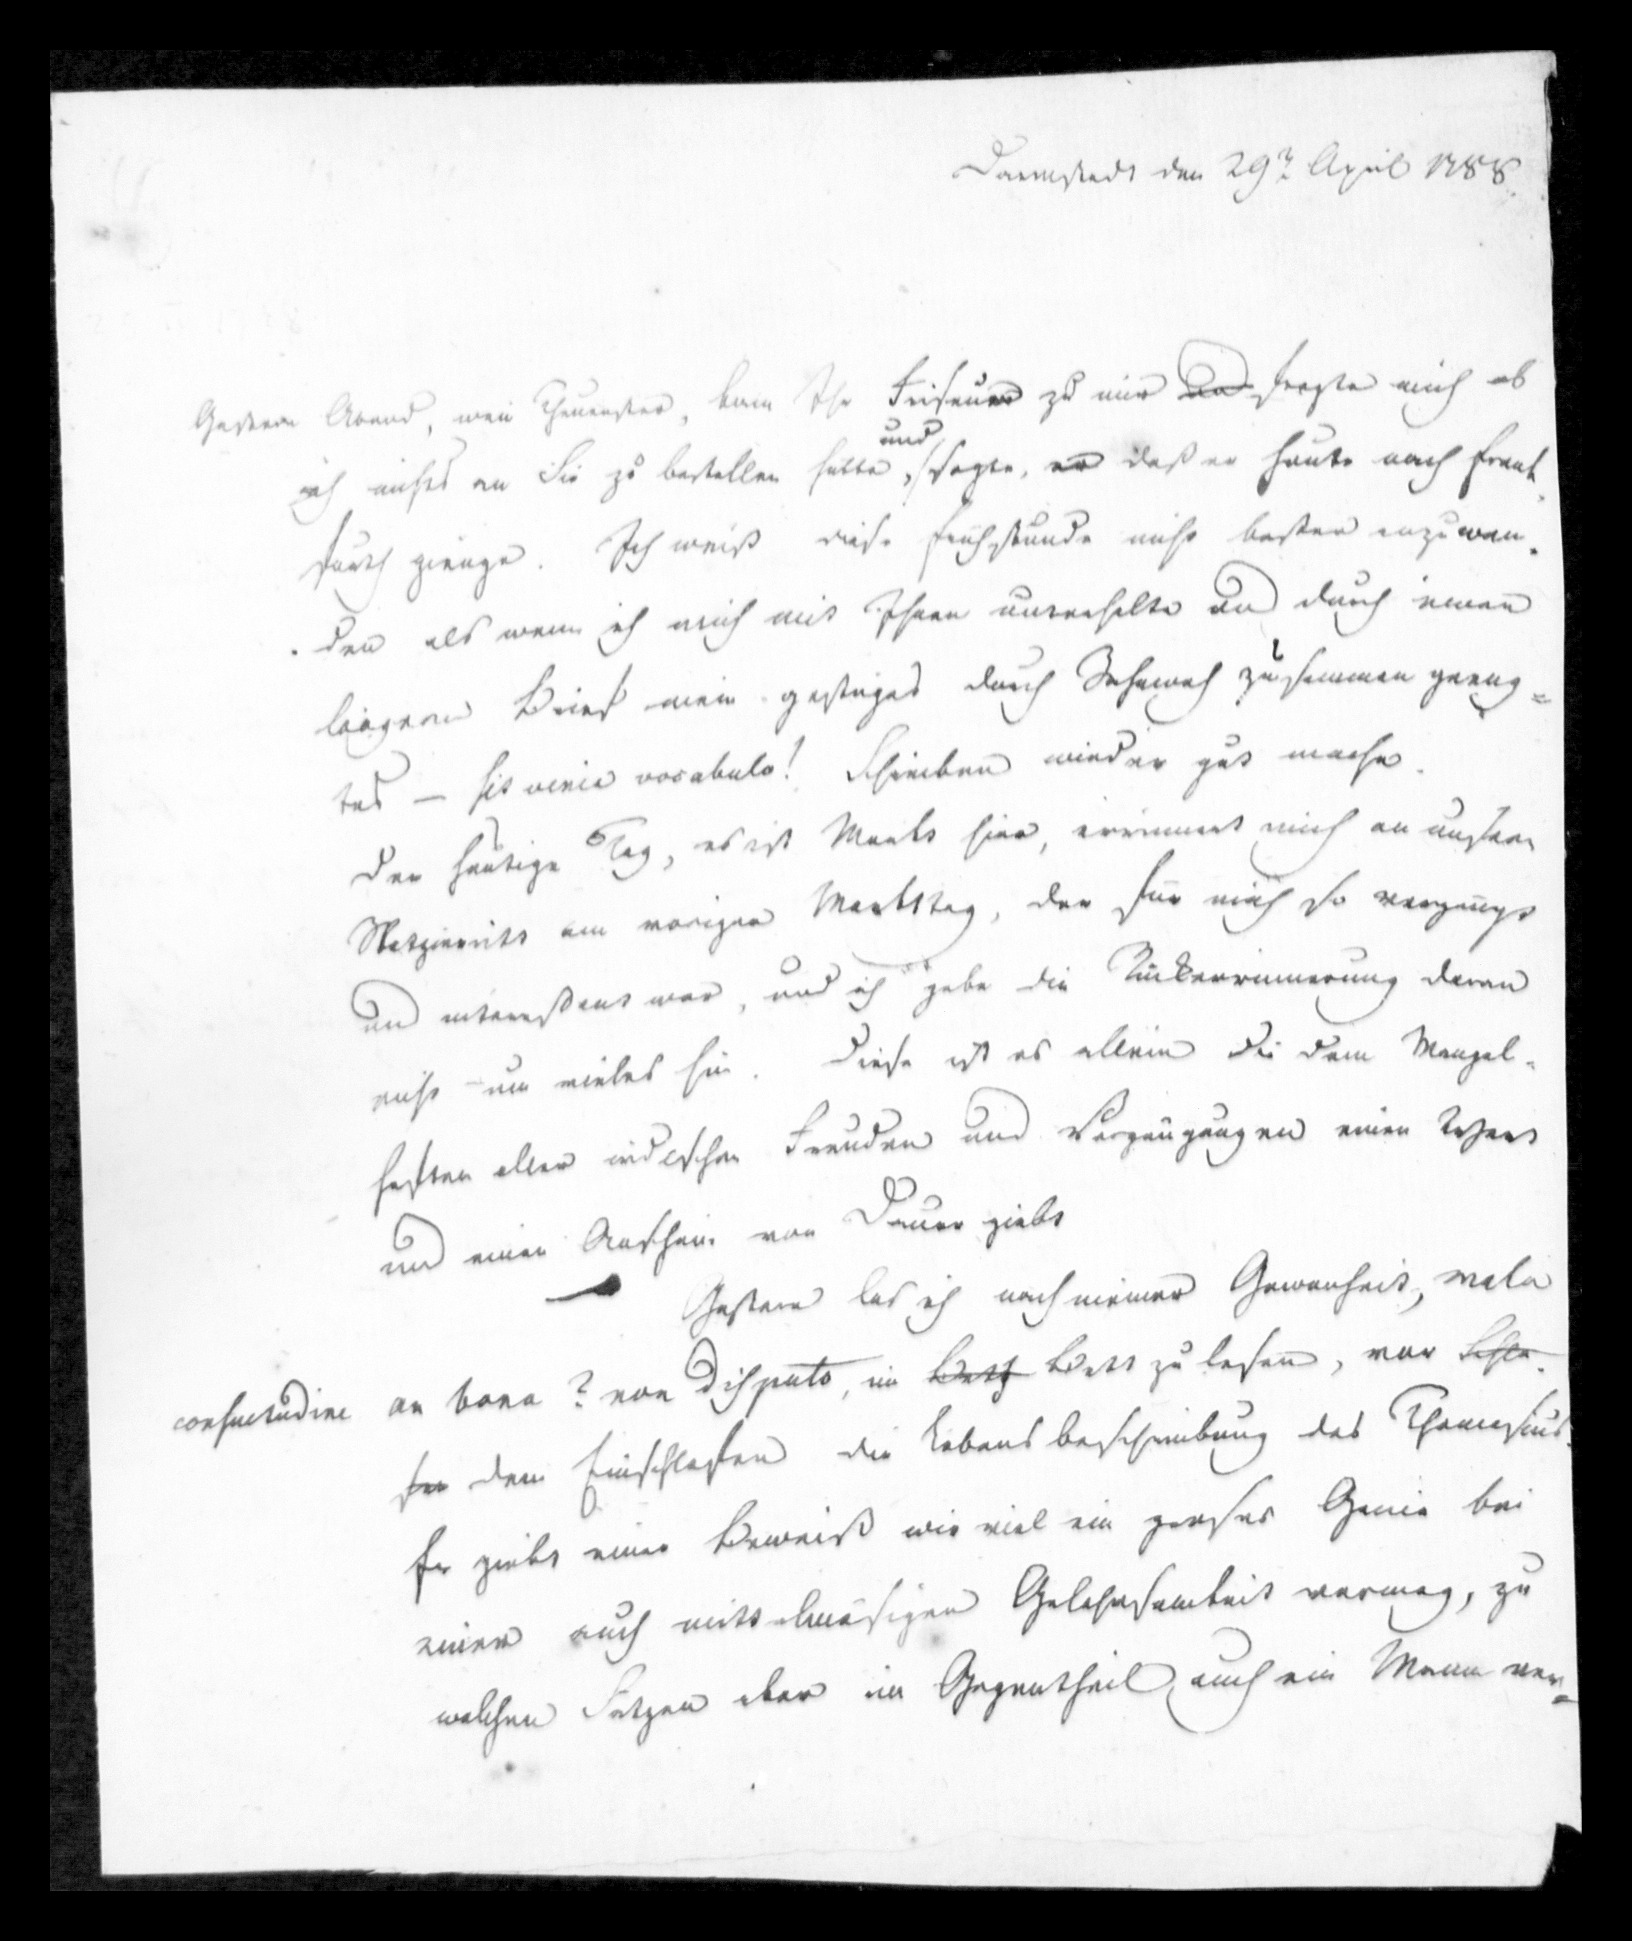 Darmstadt den 29n April 1788.
Gestern Abend, mein Theuerster, kam Ihr Friseur zu mir und fragte mich ob
ich nichts an Sie zu bestellen hätte, und sagte, er daß er heute nach Frank-
furth gienge. Ich weiß diese Frühstunde nicht besser anzuwen-
den als wenn ich mich mit Ihnen unterhalte und durch einen
längern Brief mein gestriges durch zusammen geeng-
tes — sit venia vocabulo! Schreiben wieder gut mache.
Der heutige Tag, es ist Markt hier, erinnert mich an unsern
am vorigen Marktstag, der für mich so vergnügt
und interessant war, und ich gebe die Rückerinnerung daran
nicht um vieles hin. Diese ist es allein die dem Mangel-
haften aller irdischen Freuden und Vergnügungen einen Wehrt
und einen Anschein von Dauer giebt
Gestern las ich nach meiner Gewonheit, mala
consuetudine an bona? non disputo, im Bett Bett zu lesen, vor Schla-
fen dem Einschlafen die Lebensbeschreibung des Thomasius.
Er giebt einen Beweiß wie viel ein groses Genie bei
einer auch mittelmäsigen Gelehrsamkeit vermag, zu
welchen Sätzen aber im Gegentheil auch ein Mann ver-